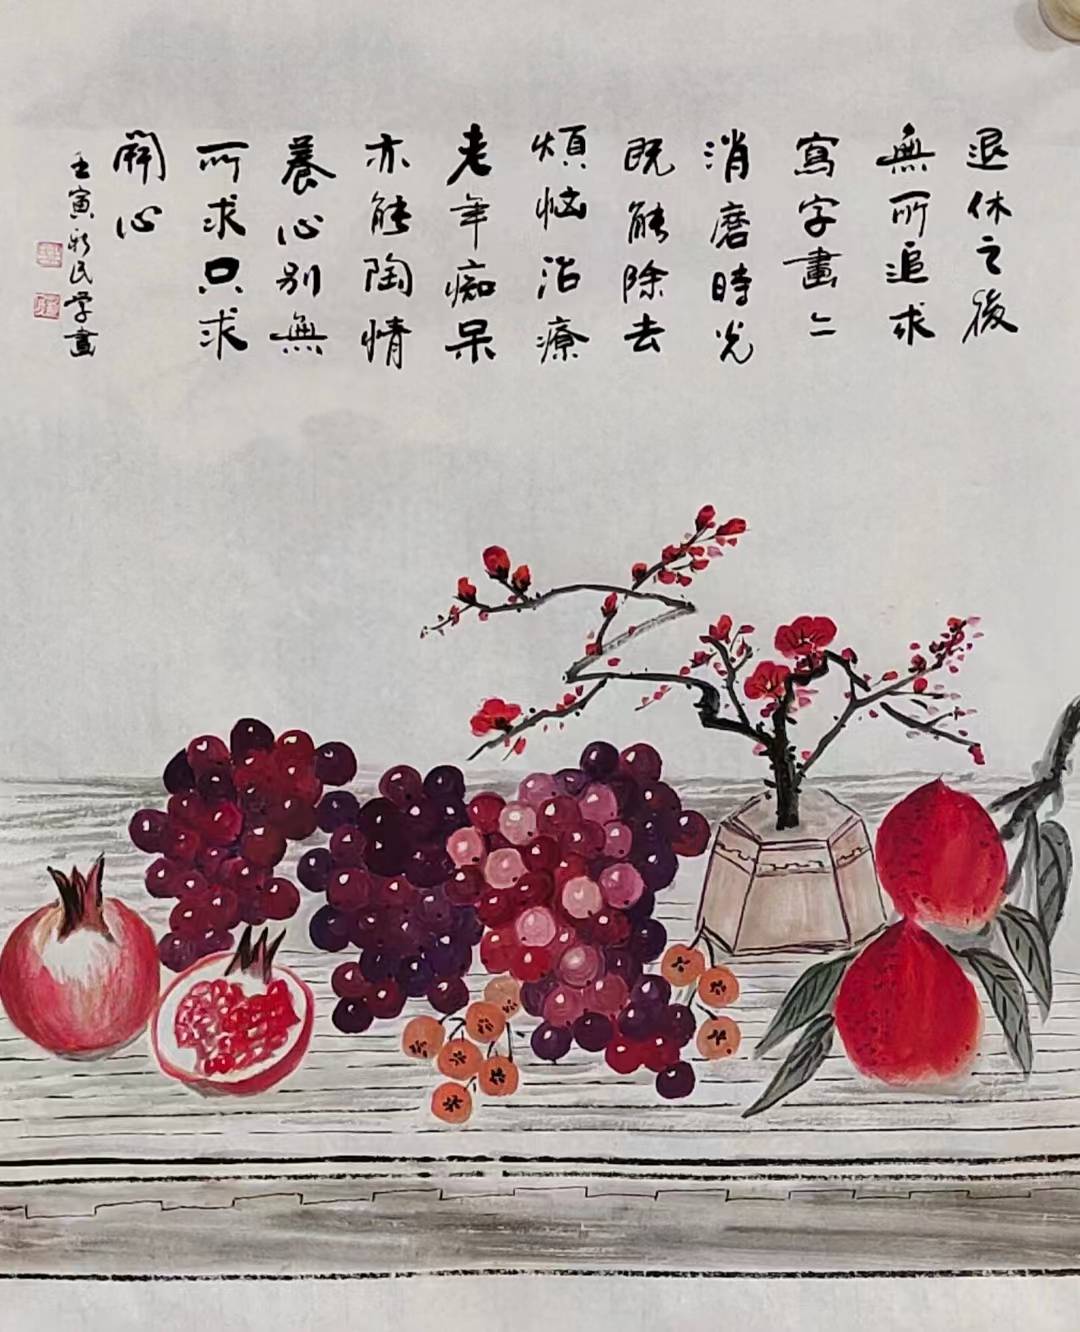 退休之後
無所追求
寫字畫二
消磨時光
既能除去
煩恼治療
老年痴呆
亦能陶情
養心别無
所求只求
開心
壬寅新民学畫